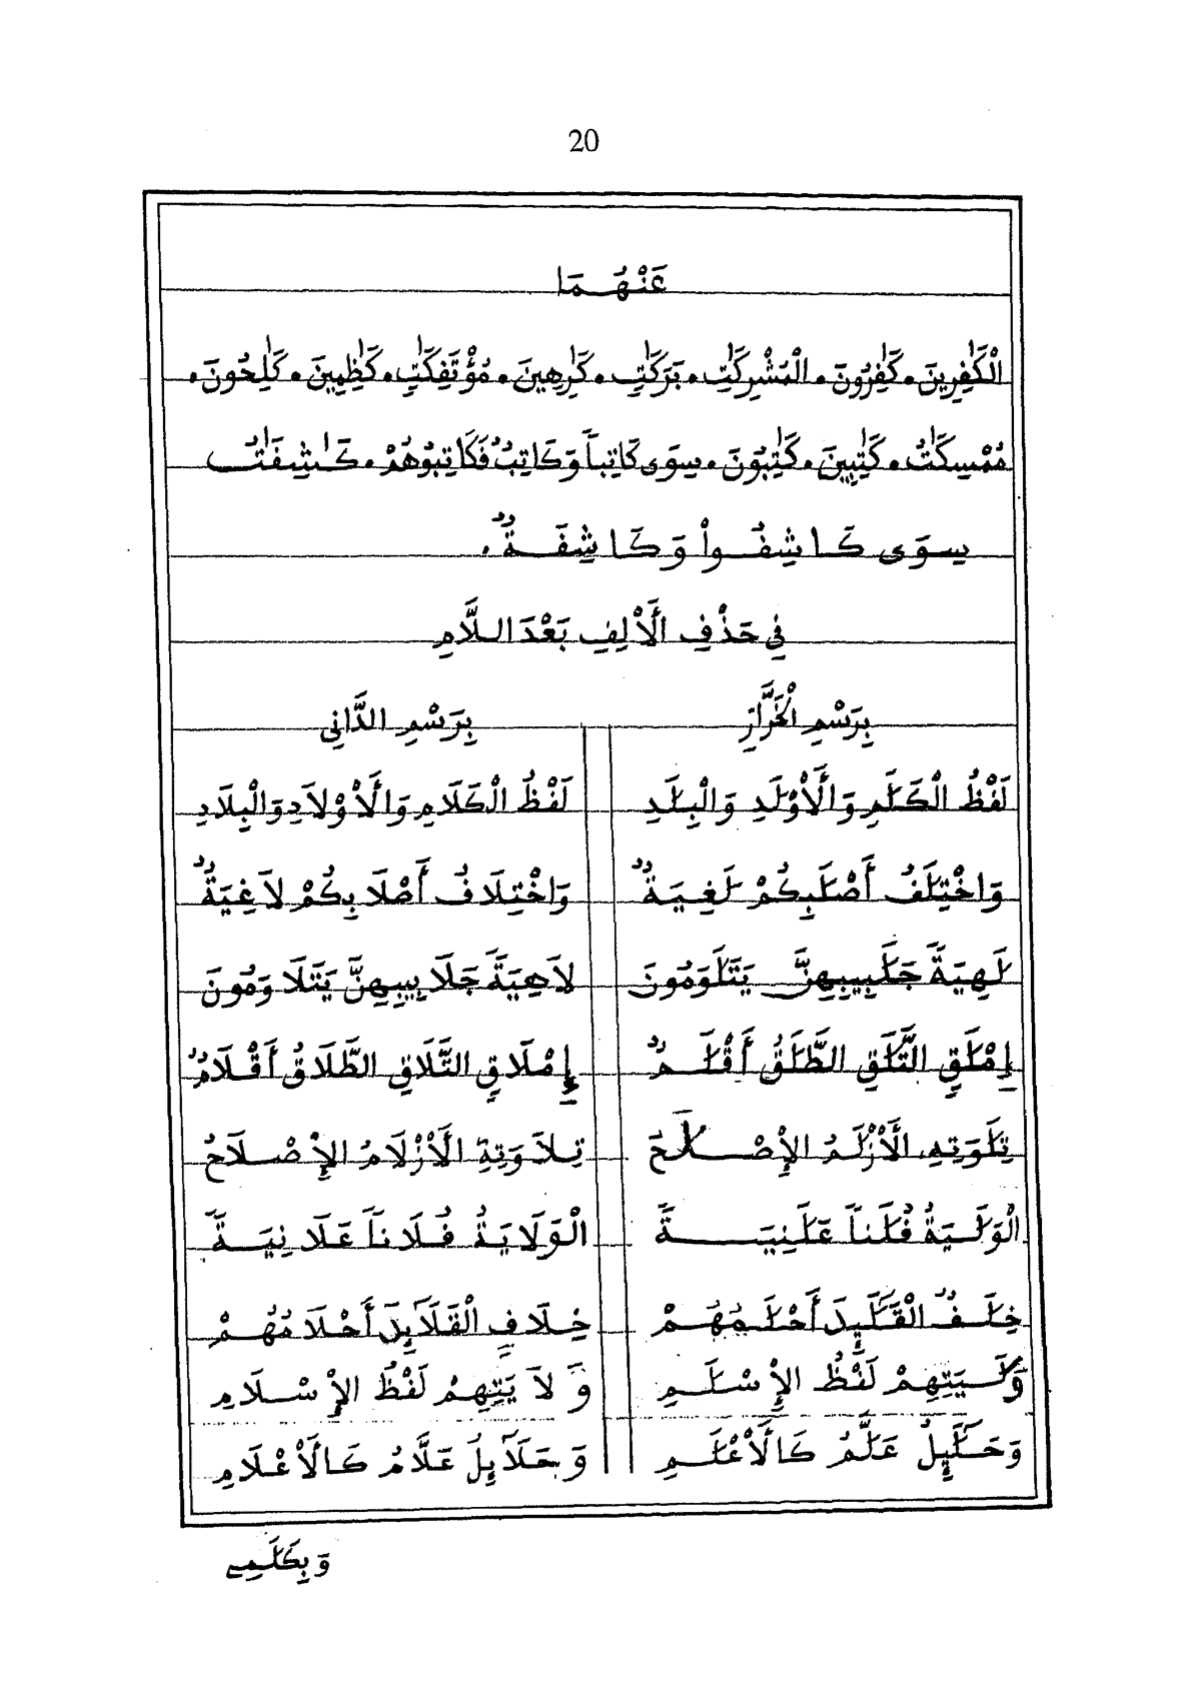 20
عَنْهُمَا
الْكَٰفِرِينَ • كَٰفِرُونَ • الْمُشْرِكَٰتِ • بَرَكَٰتٍ • كَٰرِهِينَ • مُؤْتَفِكَٰتِ • كَٰظِمِينَ • كَٰلِحُونَ •
مُمْسِكَٰتُ • كَٰتِبِينَ • كَٰتِبُونَ • سِوَى كَاتِباً وَكَاتِبٌ فَكَاتِبُوهُمْ • كَٰشِفَٰتُ
سِوَى كَاشِفُواْ وَكَاشِفَةٌ •
فِي حَذْفِ الَْالِفِ بَعْدَ اللَّامِ
بِرَسْمِ الْخَرَّازِ	بِرَسْمِ الدَّانِى
لَفْظُ الْكَلَٰمِ وَالَْاوْلَٰدِ وَالْبِلَٰدِ	لَفْظُ الْكَلَامِ وَالَْاوْلَادِ وَالْبِلَادِ
وَاخْتِلَٰفُ أَصْلَٰبِكُمْ لَٰغِيَةٌ	وَاخْتِلَافُ أَصْلَابِكُمْ لَاغِيَةٌ
لَٰهِيَةً جَلَٰبِيبِهِنَّ يَتَلَٰوَمُونَ	لَاهِيَةً جَلَابِيبِهِنَّ يَتَلَاوَمُونَ
إِمْلَٰقٍ التَّلَٰقِ الطَّلَٰقُ أَقْلَٰمٌ	إِمْلَاقٍ التَّلَاقِ الطَّلَاقُ أَقْلَامٌ
تِلَٰوَتِهِ الَْازْلَٰمُ الإِصْلَٰحَ	تِلَاوَتِهِ الَْازْلَامُ الإِصْلَاحُ
الْوَلَٰيَةُ فُلَٰناً عَلَٰنِيَةً	الْوَلَايَةُ فُلَاناً عَلَانِيَةً
خِلَٰفٌ الْقَلَٰٓئِدَ أَحْلَٰمُهُمْ	خِلَافٍ الْقَلَآئِدَ أَحْلَامُهُمْ
وَلَٰيَتِهِمْ لَفْظُ الإِسْلَٰمِ	وَلَايَتِهِمْ لَفْظُ الإِسْلَامِ
وَحَلَٰٓئِلُ عَلَّٰمُ كَالَْاعْلَٰمِ	وَحَلَآئِلُ عَلَّامُ كَالَْاعْلَامِ
وَبِكَلَٰمِے